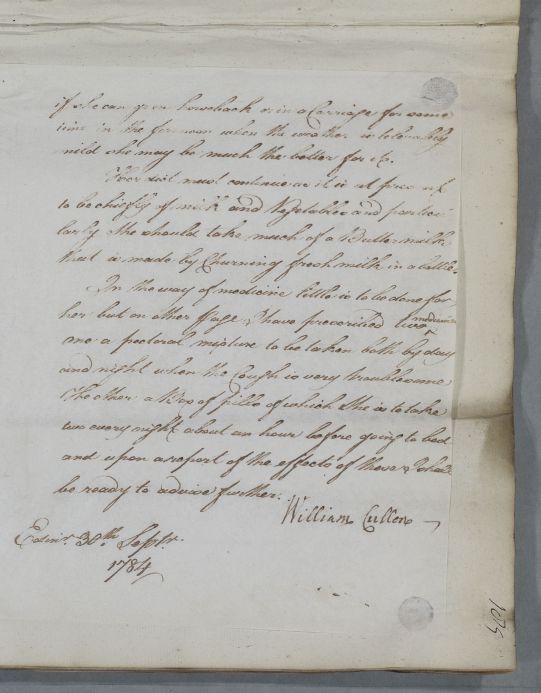 if she can go on horseback or in a Carriage for some
time in the forenoon when the weather is tolerably
mild she may be much the better for it.
Her diet must continue as it is at present
to be chiefly of milk and Vegetables and particu
larly she should take much of a Butter milk
that is made by Churning fresh milk in a bottle.
In the way of medicine little is to be done for
her but on other Page I have prescribed two medicines
one a pectoral mixture to be taken both by day
and night when the Cough is very troublesome
The other a Box of pills of which she is to take
two every night about an hour before going to bed
and upon a report of the effects of these I shall
be ready to advise further.
William Cullen
Edinr. 30th Septr.
1784